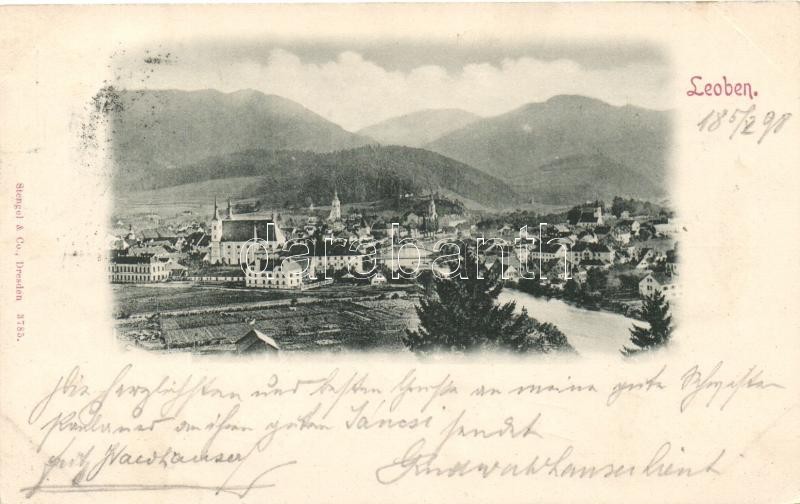 Leoben.
18 5/2 98
Stengel & Co., Dresden 3785.
darabanth
Die herzlichsten und besten Grüsse an meine gute Schwester
an ihren guten Jáncsi sendet